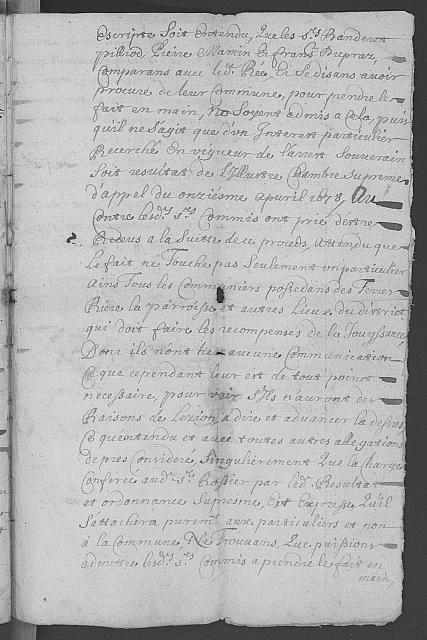 Escripte Soit Entendu, Que les Srs Banderet
pilliod, Pierre Mamin Et frans Dupraz,
Comparans avec led. Et se disans avoir
procure de leur Commune, pour prendre le
fait en main, No Soyent admis a Cela, puis
qu'il ne S'agit que d'vn Interest particulier
Recerché En vigueur de l'arrest Souverain
Soit resultat de L'Illustre Chambre Supreme
d'appel du onziésme Apuril 1678, Au
Contre lesds Srs Commis ont prié d'estre
a la Suitte de ce procés, attendu que
le fait ne Touche pas Seulement vn particulier
Ains Tous les Communiers possedans des Terres
Riere la parroisse et autres Lieux du district
qui doit faire les recompenses de la Jouyssance
Donc ils n'ont heu aucune Communication
Ce que cependant leur est de tout poinct
necessaire, pour voir S'Ils n'auront des
Raisons de Lezion a dire et advancer la dessus
Ce qu'entendu et avec toutes autres allegations
de pres Consideré, Singulierement Que la charge
Conferée aud. Sr Rossier par led. Resultat
et ordonnance Supresme, Est Expresse, qu'il
S'attachera puremt aux particuliers et non
à la Commune, Ne Trouvans, Que puissions
admettre lesds Srs Commis a prendre le fait en
main,